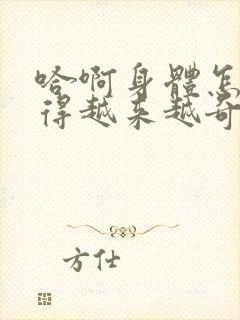 哈啊身體怎
得越来越奇
方仕